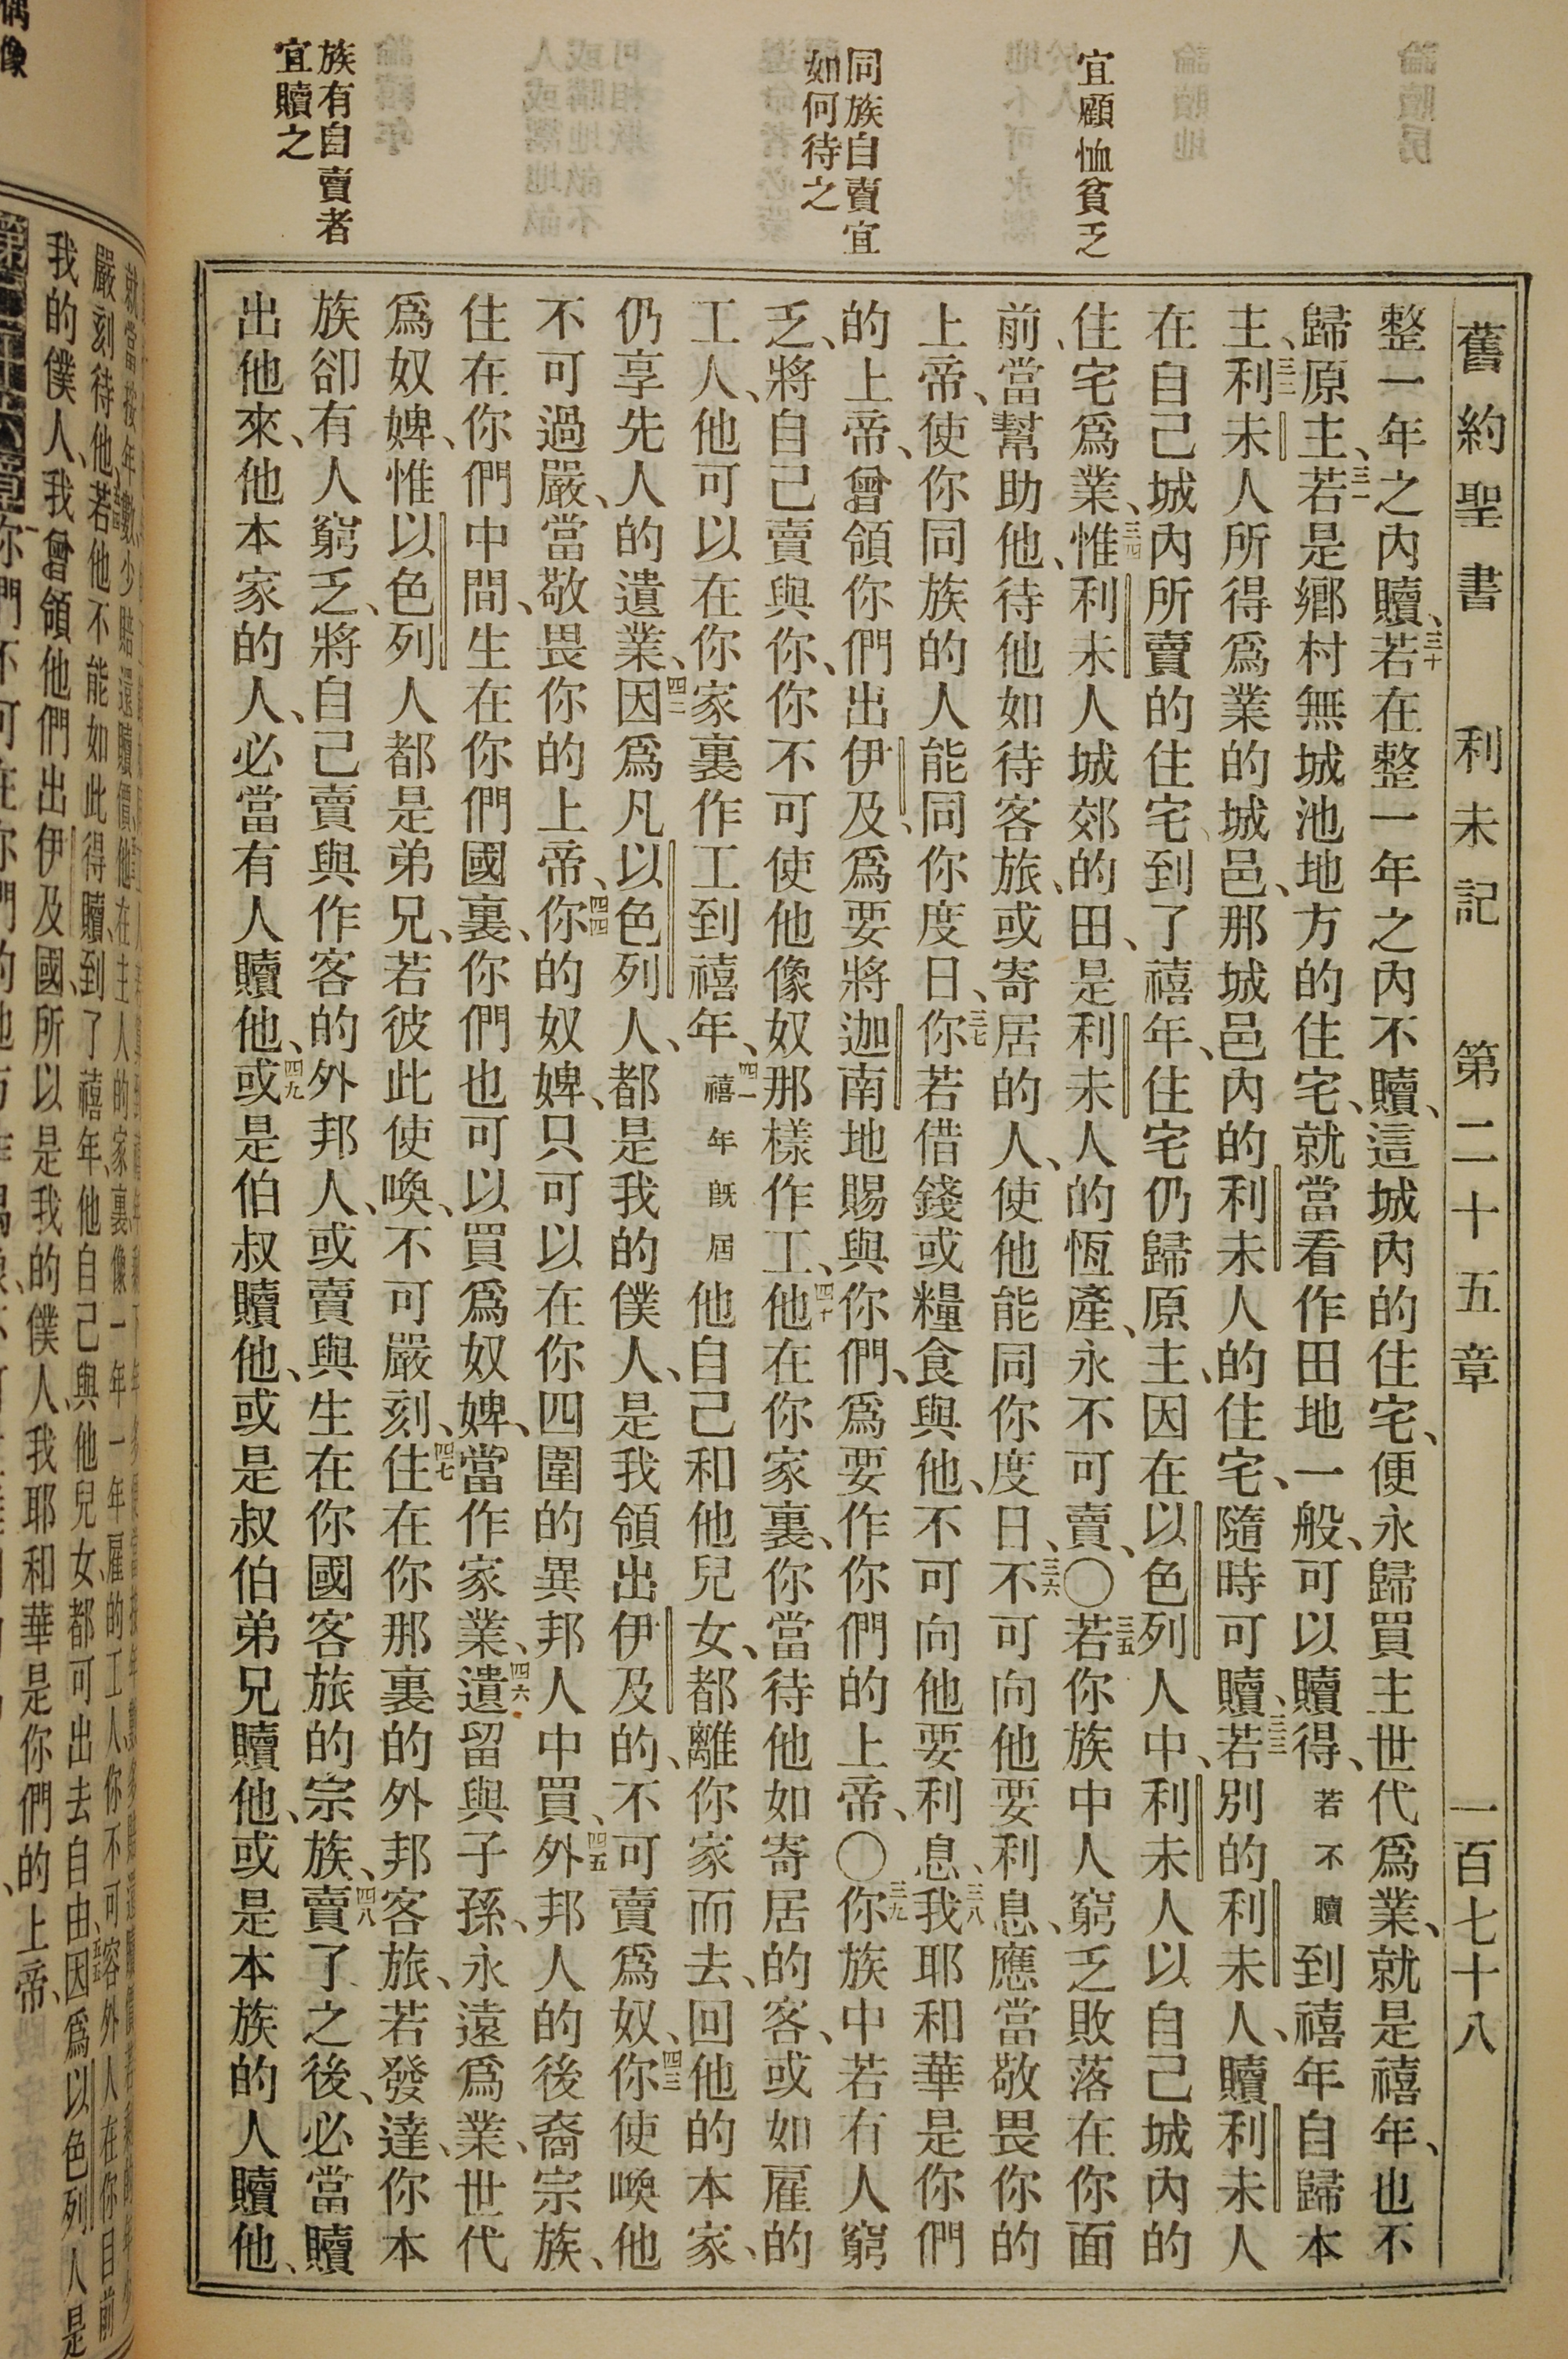 宜顧恤貧乏
同族自賣宜
如何待之
族有自賣者
宜贖之
舊約聖書 利未記 第二十五章 一百七十八
整一年之內贖、三十若在整一年之內不贖、這城內的住宅、便永歸買主世代爲業、就是禧年、也不
歸原主、三一若是鄉村無城池地方的住宅、就當看作田地一般、可以贖得、若不贖到禧年自歸本
主、三二利未人所得爲業的城邑、那城邑內的利未人的住宅、隨時可贖、三三若別的利未人、贖利未人
在自己城內所賣的住宅、到了禧年、住宅仍歸原主、因在以色列人中、利未人以自己城內的
住宅爲業、三四惟利未人城郊的田、是利未人的恆產、永不可賣、〇三五若你族中人窮乏敗落在你面
前、當幫助他、待他如待客旅、或寄居的人、使他能同你度日、三六不可向他要利息、應當敬畏你的
上帝、使你同族的人能同你度日、三七你若借錢或糧食與他、不可向他要利息、三八我耶和華是你們
的上帝、曾領你們出伊及、爲要將迦南地賜與你們、爲要作你們的上帝、〇三九你族中若有人窮
乏、將自己賣與你、你不可使他像奴那樣作工、四十他在你家裏、你當待他如寄居的客、或如雇的
工人、他可以在你家裏作工到禧年、四一禧年既屆他自己和他兒女、都離你家而去、回他的本家、
仍享先人的遺業、四二因爲凡以色列人、都是我的僕人、是我領出伊及的、不可賣爲奴、四三你使喚他
不可過嚴、當敬畏你的上帝、四四你的奴婢、只可以在你四圍的異邦人中買、四五外邦人的後裔宗族、
住在你們中間、生在你們國裏、你們也可以買爲奴婢、當作家業、四六遺留與子孫、永遠爲業、世代
爲奴婢、惟以色列人都是弟兄、若彼此使喚、不可嚴刻、四七住在你那裏的外邦客旅、若發達、你本
族卻有人窮乏、將自己賣與作客的外邦人、或賣與生在你國客旅的宗族、四八賣了之後、必當贖
出他來、他本家的人、必當有人贖他、四九或是伯叔贖他、或是叔伯弟兄贖他、或是本族的人贖他、
嚴刻待他、若他不能如此得贖、到了禧年、他自己與他兒女、都可出去自由、因爲以色列人是
我的僕人、我曾領他們出伊及國、所以是我的僕人、我耶和華是你們的上帝、